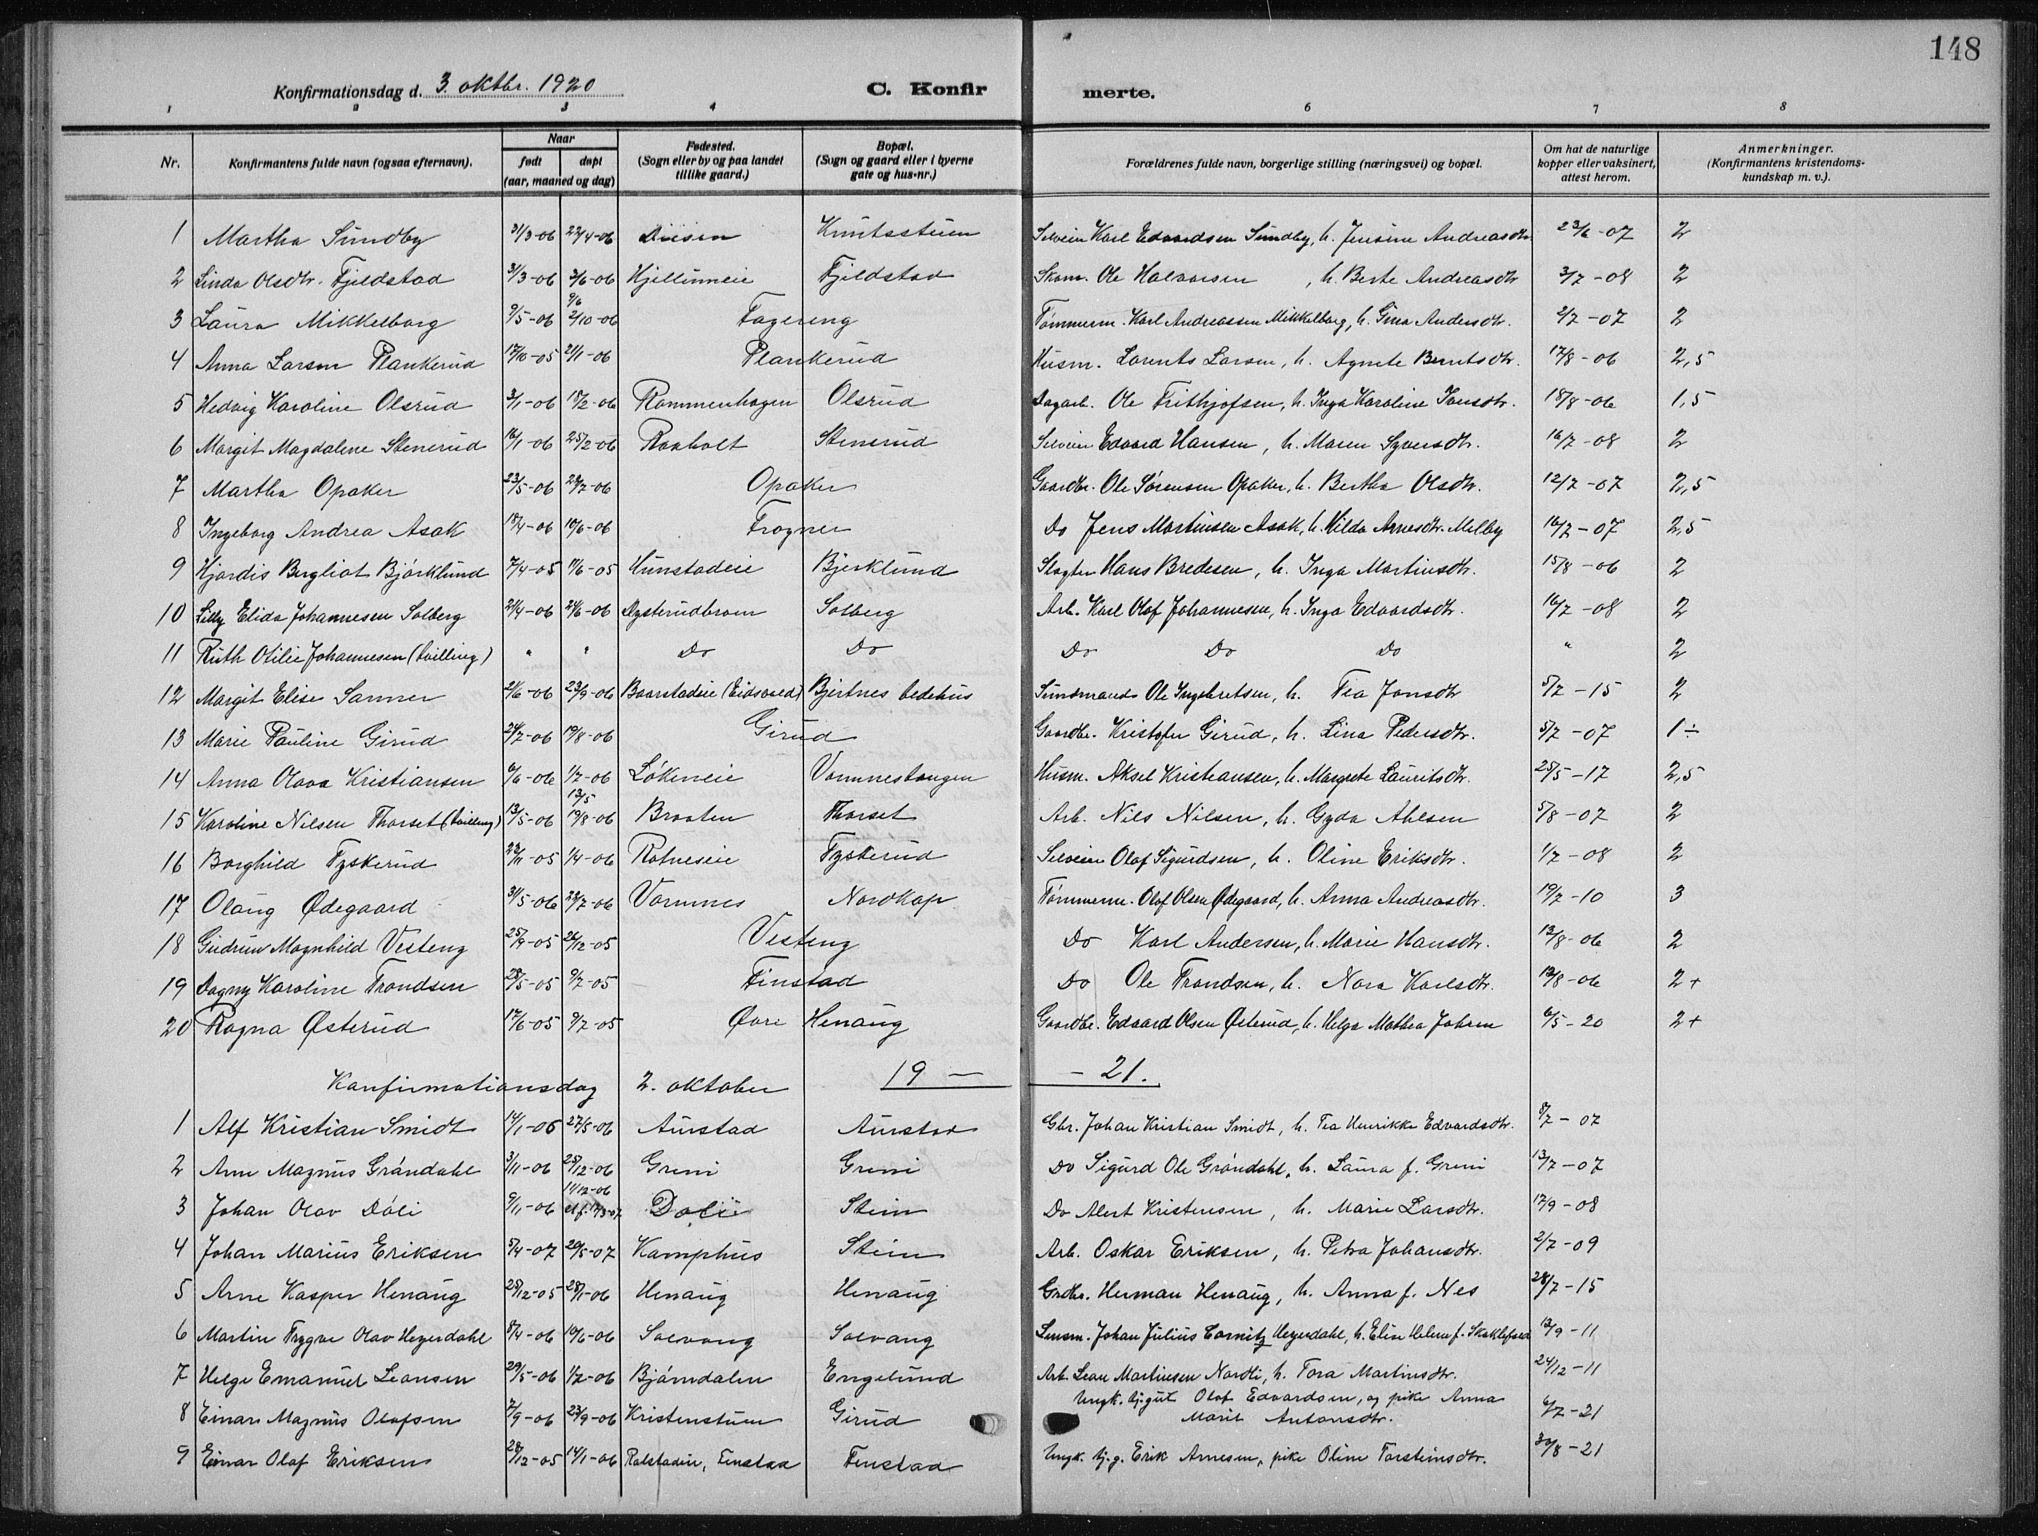 148
Konfirmationsdag d. 3. oktbr. 1920 C. Konfirmerte.
1 2 3 4 6 7 8
Nr. Konfirmantens fulde navn (ogsaa efternavn). Naar født døpt (aar, maaned og dag) Fødested. (Sogn eller by og paa landet tillike gaard.) Bopæl. (Sogn og gaard eller i byerne gate og hus-nr.) Forældrenes fulde navn, borgerlige stilling (næringsvei) og bopæl. Om hat de naturlige kopper eller vaksinert, attest herom. Anmerkninger. (Konfirmantens kristendomskundskap m. v.).
1 Martha Sundby 31/3-06 22/4-06 Knutsstuen Selveier Karl Edvardsen Sundby, h. Jensine Andreasdtr. 23/6-07 2
2 Linda Olsdtr. Fjeldstad 31/3-06 3/6-06 Hjellumeie Fjeldstad Skom. Ole Halvorsen, h. Berte Andreasdtr 3/7-08 2
3 Laura Mikkelborg 9/5-06 9/6 2/10-06 Fagereng Tømmerm. Karl Andreassen Mikkelborg, h. Gina Andersdtr. 2/7-07 2
4 Anna Larsen Plankerud 17/10-05 21/1-06 Plankerud Husm. Lorents Larsen, h. Agnete Berntsdtr. 17/8-06 2,5
5 Hedvig Karoline Olsrud 3/1-06 18/2-06 Rommenhagen Olsrud Dagarb. Ole Frithjofsen, h. Inga Karoline Jansdtr. 18/8-06 1,5
6 Margit Magdalene Stenerud 16/1-06 25/2-06 Raaholt Stenerud Selveier Edvard Hansen, h. Maren Syversdtr. 16/7-08 2
7 Martha Opaker 23/5-06 22/7-06 Opaker Gaardbr. Ole Sørensen Opaker, h. Bertha Olsdtr. 12/7-07 2,5
8 Ingeborg Andrea Asak 18/4-06 10/6-06 Frogner Do Jens Martinsen Asak, h. Hilda Arnesdtr. Melby 16/7-07 2,5
9 Hjørdis Bergliot Bjørklund 7/4-05 11/6-05 Hunstadeie Bjerklund Slagter Hans Bredesen, h. Inga Martinsdtr. 15/8-06 2
10 Lilly Elida Johannesen Solberg 21/4-06 24/6-06 Dysterudbroen Solberg Arb. Karl Olaf Johannesen, h. Inga Edvardsdtr. 16/7-08 2
11 Ruth Otilie Johannesen (tvilling) " " Do Do Do Do Do " 2
12 Margit Elise Sanner 21/6-06 23/9-06 Baarstadeie (Eidsvold) Bjertnes bedehus Sundmand Ole Ingebretsen, h. Tea Jonsdtr 5/7-15 2
13 Marie Pauline Girud 24/7-06 19/8-06 Girud Gaardbr. Kristofer Girud, h. Lina Pedersdtr. 5/7-07 1÷
14 Anna Olava Kristiansen 6/6-06 1/7-06 Løkeneie Vormnestangen Husm. Aksel Kristiansen, h. Margrete Lauritsdtr. 25/5-17 2,5
15 Karoline Nilsen Thorset (tvilling) 13/5-06 13/5 19/8-06 Braaten Thorset Arb. Nils Nilsen, h. Gyda Ahlsen 5/8-07 2
16 Borghild Tyskerud 22/11-05 1/4-06 Rotneseie Tyskerud Selveier Olaf Sigurdsen, h. Oline Eriksdtr. 1/7-08 2
17 Olaug Ødegaard 31/5-06 22/7-06 Vormnes Nordkap Tømmerm. Olaf Olsen Ødegaard, h. Anna Andreasdtr. 19/7-10 3
18 Gudrun Magnhild Vesteng 25/9-05 26/12-05 Vesteng Do Karl Andersen, h. Marie Hansdtr. 12/8-06 2
19 Dagny Karoline Trondsen 28/5-05 9/7-05 Finstad Do Ole Trondsen, h. Nora Karlsdtr. 12/8-06 2+
20 Ragna Østerud 17/6-05 9/7-05 Øvre Henaug Gaardbr. Edvard Olsen Østerud, h. Helga Mathea Johsen 6/5-20 2+
Konfirmationsdag 2. oktober 19 — - 21.
1 Alf Kristian Smidt 14/1-06 27/5-06 Aurstad Aurstad Gbr. Johan Kristian Smidt, h. Tea Henrikke Edvardsdtr. 8/7-07
2 Arne Magnus Grøndahl 3/11-06 25/12-06 Greni Greni Do Sigurd Ole Grøndahl, h. Laura f. Greni 13/7-07
3 Johan Olav Døli 9/11-06 14/12-06 Dølii Stein Do Alert Kristensen, h. Marie Larsdtr. 12/9-08
4 Johan Marius Eriksen 5/4-07 20/5-07 Kamphus Stein Arb. Oskar Eriksen, h. Petra Johansdtr. 2/7-09
5 Arne Kasper Henaug 25/12-05 28/1-06 Henaug Henaug Grdbr. Herman Henaug, h. Anna f. Nes 28/7-15
6 Martin Trygve Olav Heyerdahl 8/4-06 10/6-06 Solvang Solvang Lensm. Johan Julius Heyerdahl, h. Elise Helene f. 12/9-11
7 Helge Emanuel Leonsen 29/5-06 1/7-06 Bjørndalen Engelund Arb. Leon Martinsen Nordli, h. Tora Martinsdtr. 24/12-11
8 Einar Magnus Olafsen 7/9-06 23/9-06 Kristenstuen Girud Ungk. bj.gut Olaf Edvardsen, og pike Anna Marie Antonsdtr. 6/7-21
9 Einar Olaf Eriksen 28/12-05 14/1-06 Finstad Finstad Ungk. bj.g. Erik Arnesen, pike Oline Torsteinsdtr. 30/8-21